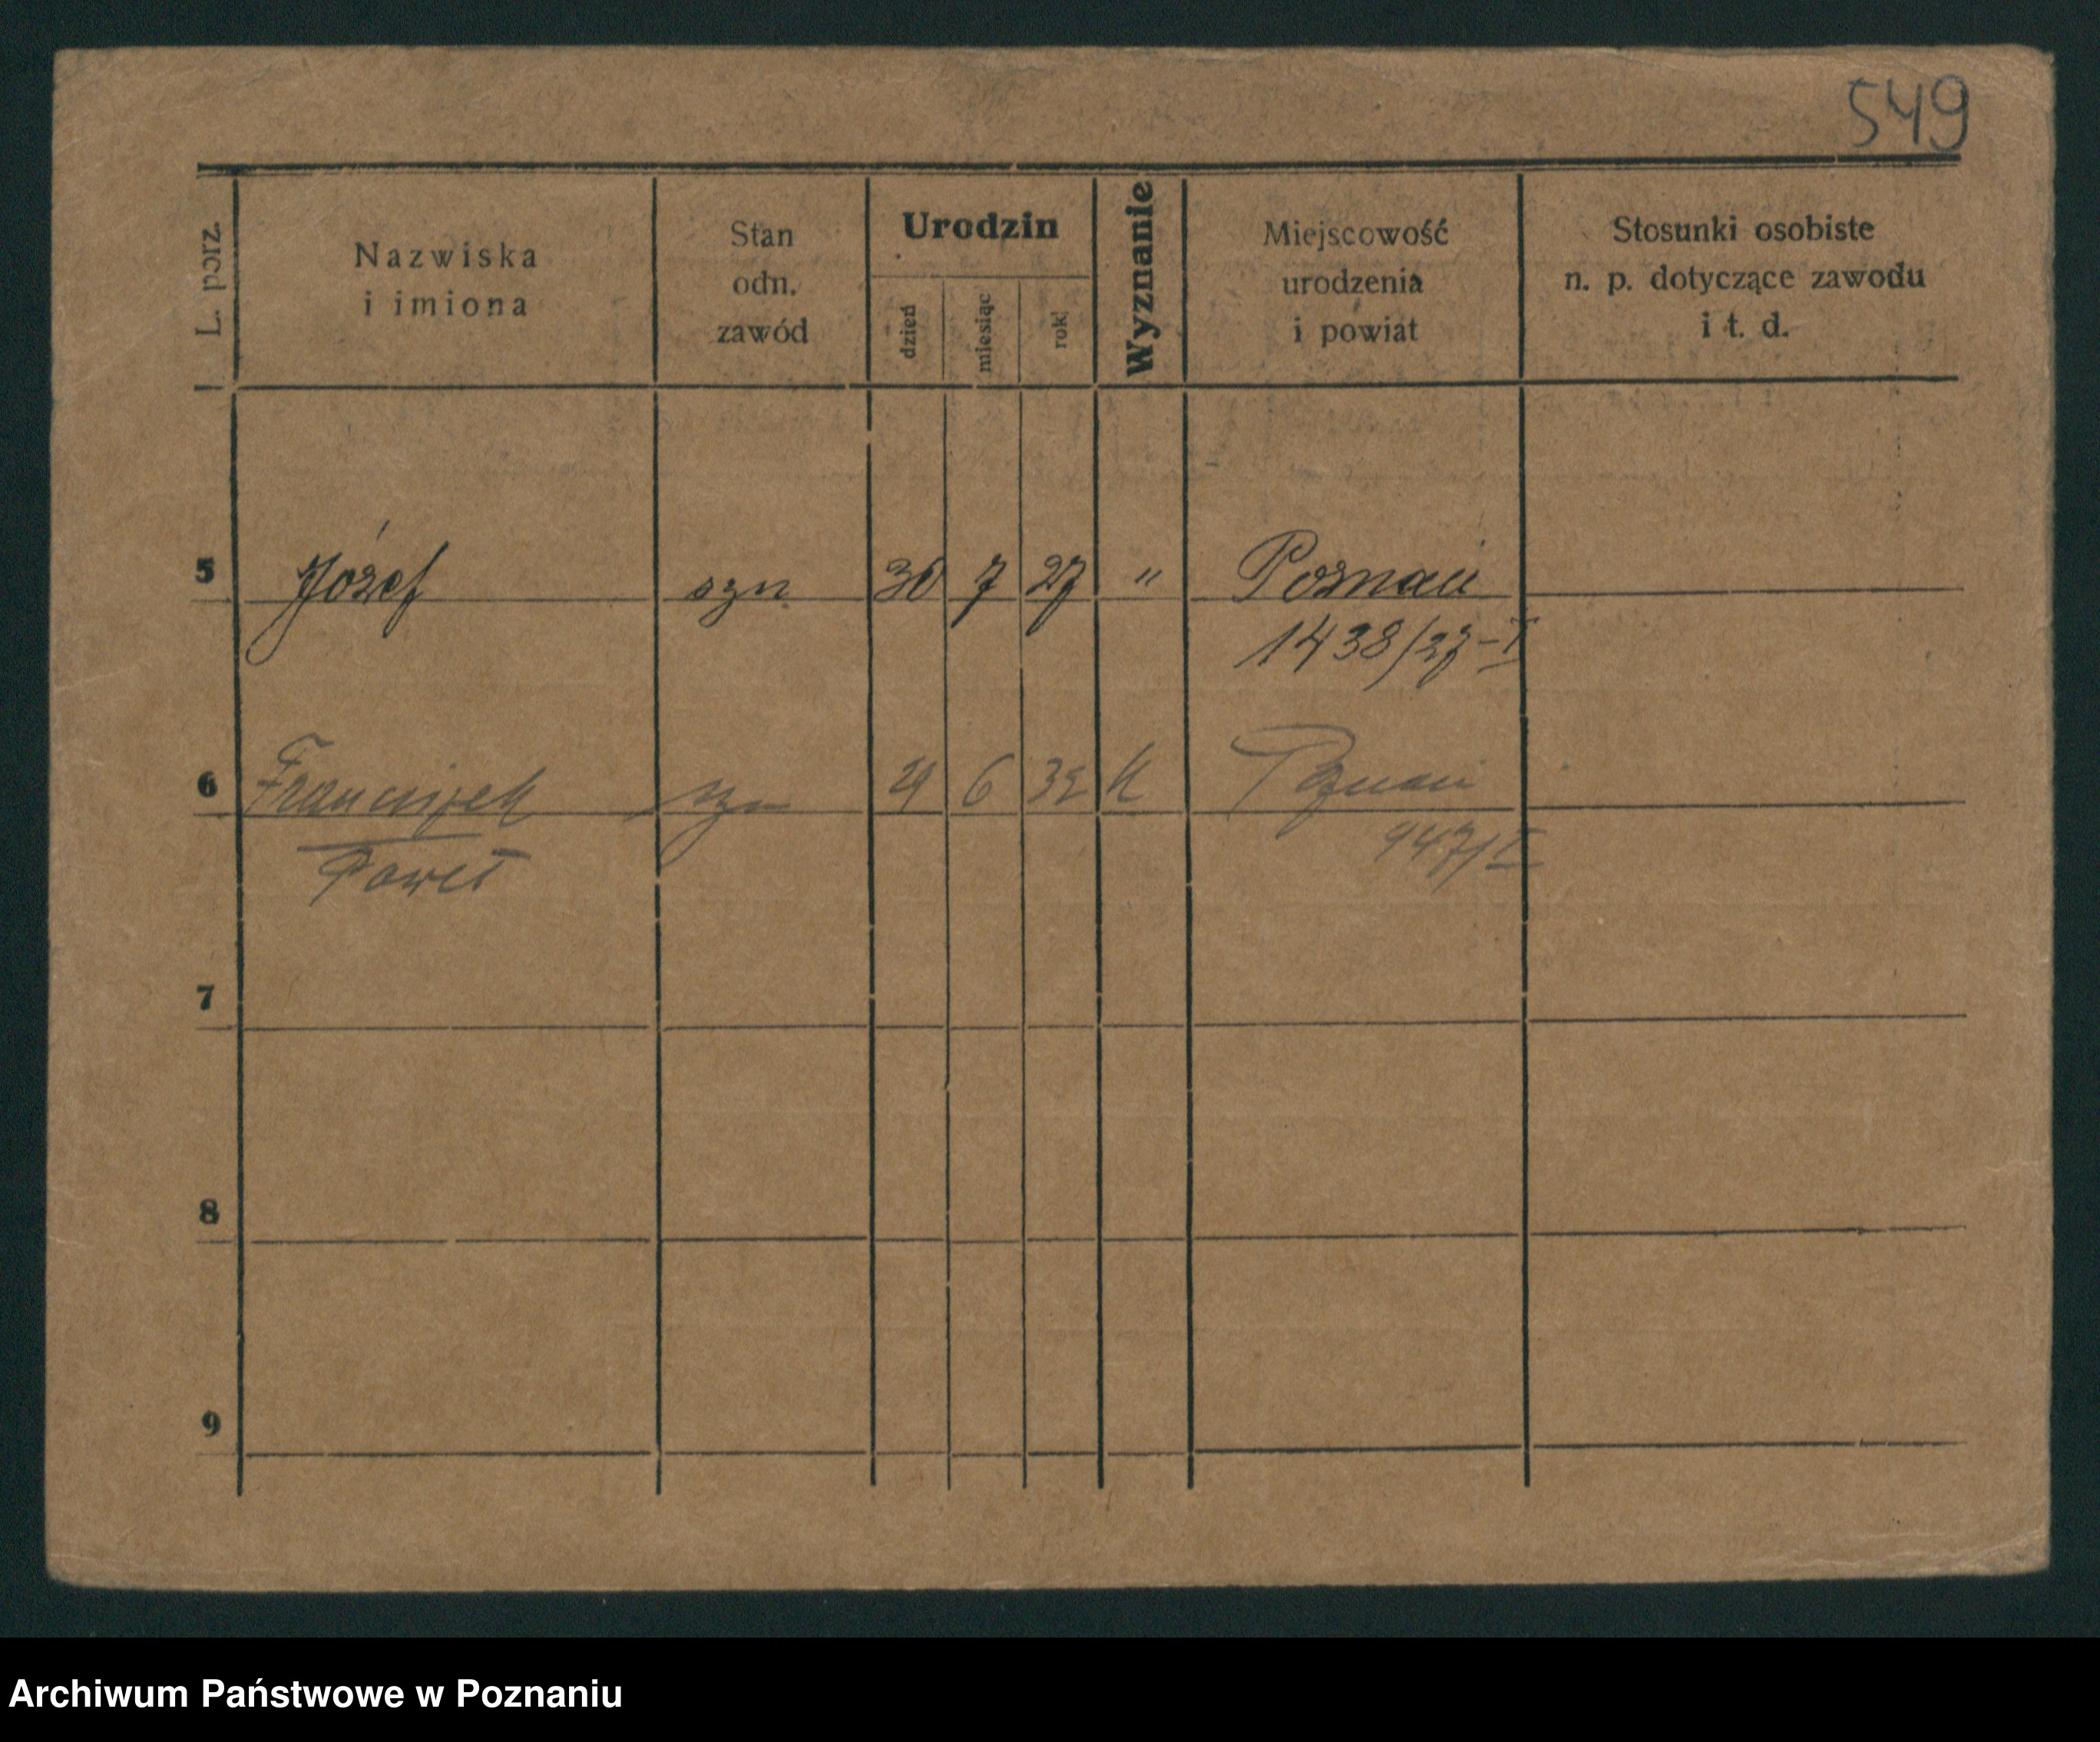 549
L. porz.
Nazwiska
i imiona
Stan
odn.
zawód
Urodzin
dzień
miesiąc
rok
Wyznanie
Miejscowość
urodzenia
i powiat
Stosunki osobiste
n. p. dotyczące zawodu
i t. d.
5 Józef syn 30 7 27 " Poznań
1438/27-I
6 Franciszek syn 29 6 32 k Poznań
947/I
Paweł
7
8
9
Archiwum Państwowe w Poznaniu